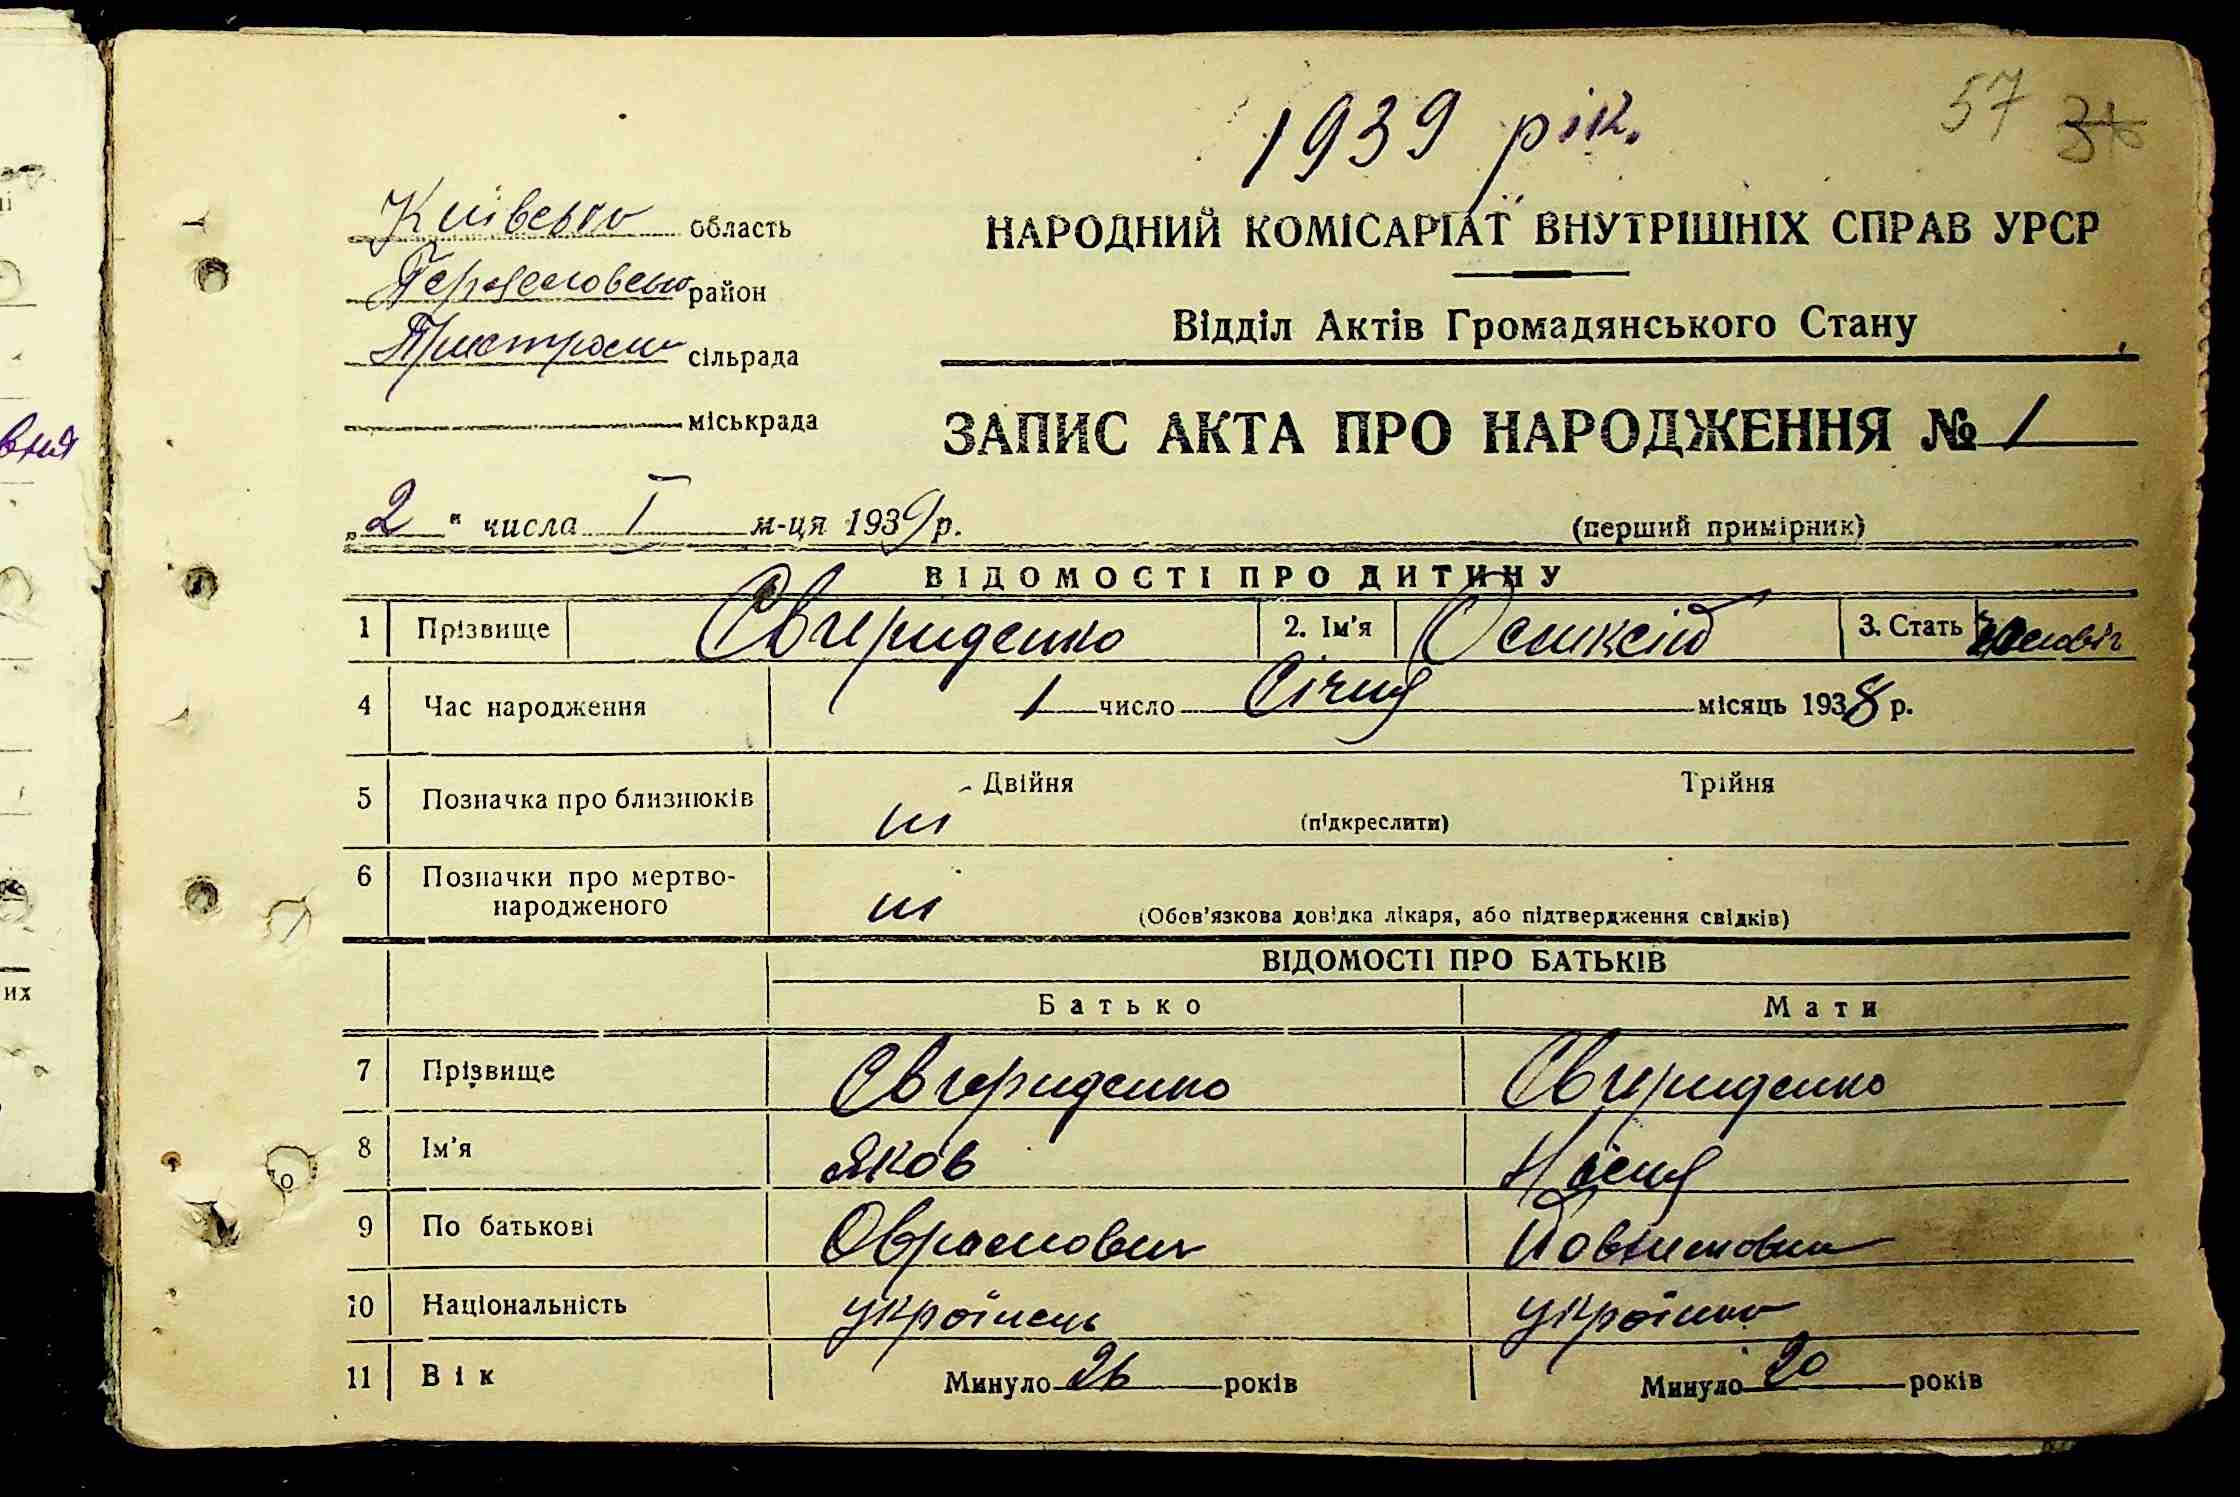 1939 рік.
57 36
Київська область
Переяславська район
Пристроми сільрада
міськрада
НАРОДНИЙ КОМІСАРІАТ ВНУТРІШНІХ СПРАВ УРСР
Відділ Актів Громадянського Стану
ЗАПИС АКТА ПРО НАРОДЖЕННЯ № 1
„2" числа I м-ця 1939 р.
(перший примірник)
ВІДОМОСТІ ПРО ДИТИНУ
1 Прізвище Свериденко 2. Ім'я 3. Стать
4 Час народження 1 число Січня місяць 1938 р.
5 Позначка про близнюків ні Двійня Трійня
(підкреслити)
6 Позначки про мертво-
народженого ні (Обов'язкова довідка лікаря, або підтвердження свідків)
ВІДОМОСТІ ПРО БАТЬКІВ
Батько Мати
7 Прізвище Свериденко Свериденко
8 Ім'я Яков
9 По батькові Оврамович
10 Національність українець українка
11 Вік Минуло 26 років Минуло 20 років
вня
их